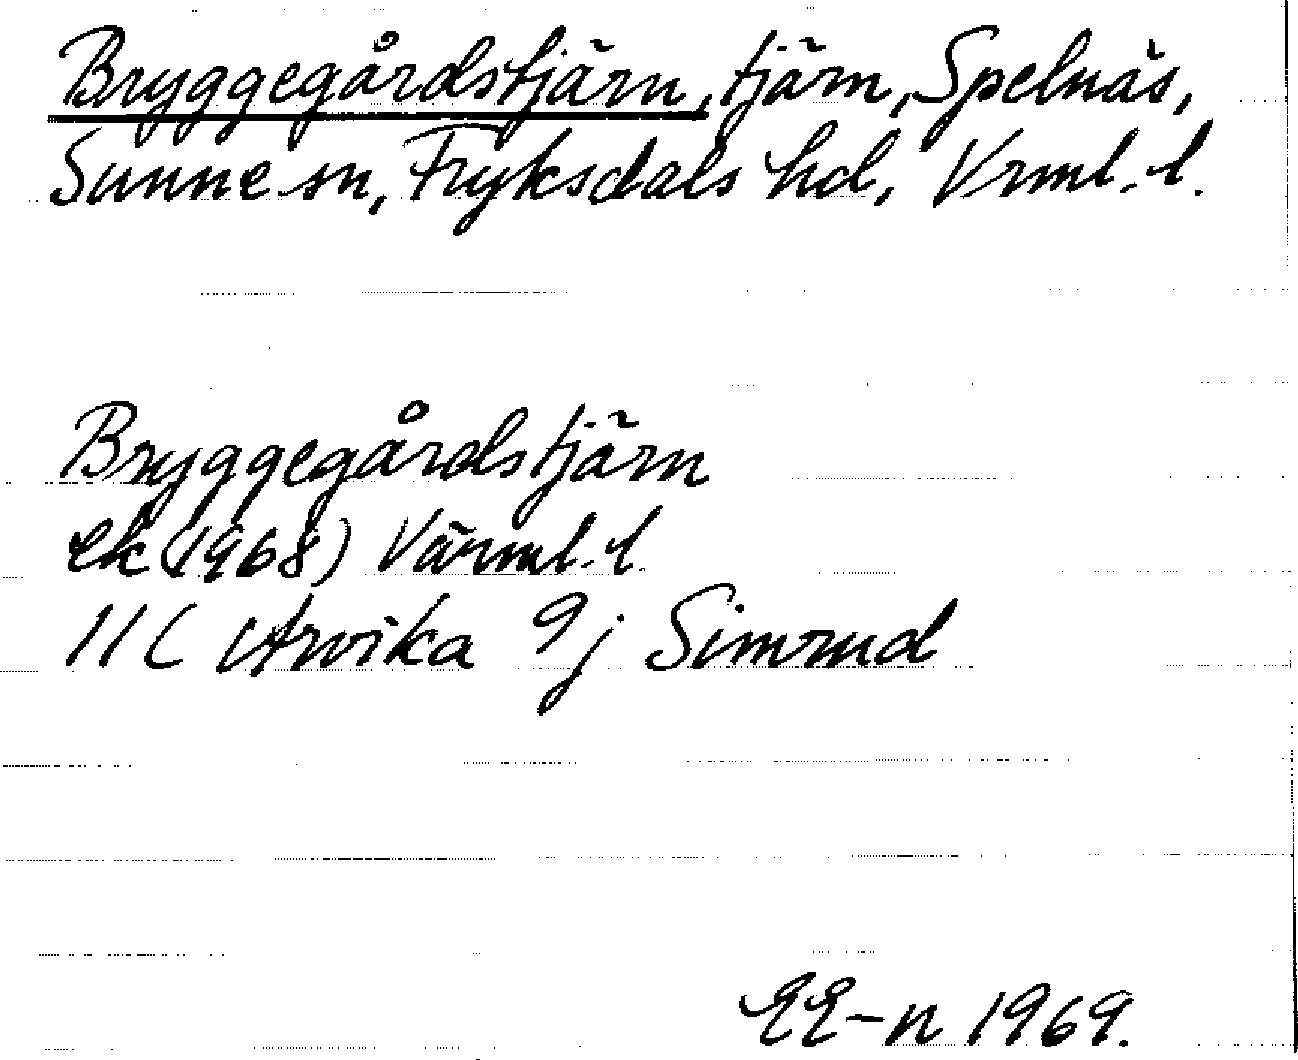 Bryggegårdstjärn, tjärn, Spelnäs,
Sunne sn, Fryksdals hd, Vrml. l.
Bryggegårdstjärn
ek (1968) Värml. l.
11C Arvika 9j Simrud
EE-n 1969.